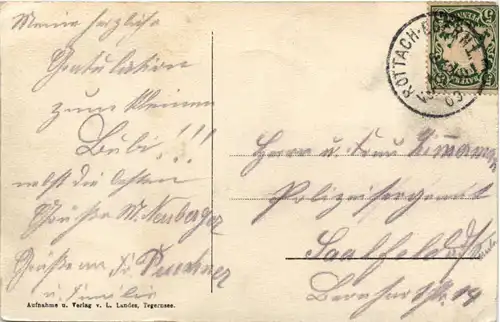 Meine herzliche
Gratulation
zum kleinen
Bubi!!!
nebst die besten
Grüße M. Neuberger
Grüße an Fr. Puechner
u. Familie
Aufnahme u. Verlag v. L. Landes, Tegernsee.
ROTTACH-
03
Herr u. Frau
Polizeisergant
Saalfeld
14